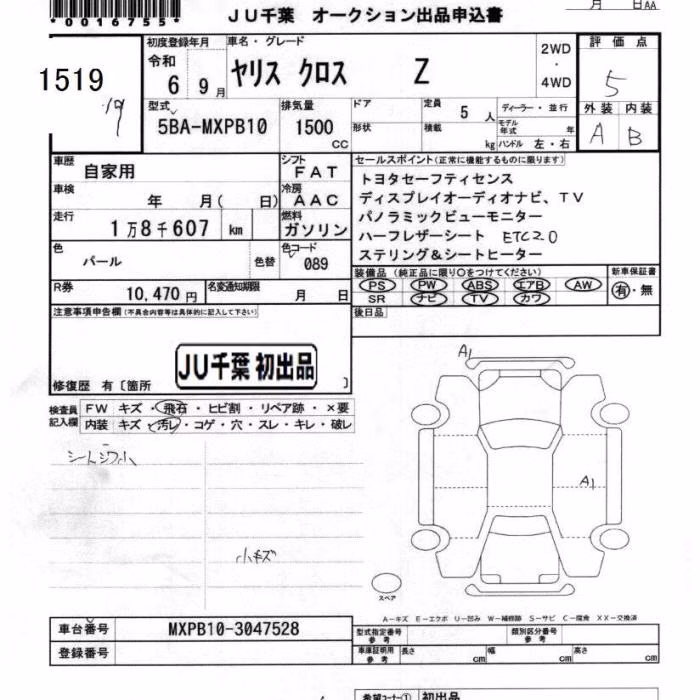 月 日 AA
*0016755*
JU千葉 オークション出品申込書
1519
初度登録年月 令和 6 9月
車名・グレード ヤリス クロス Z
2WD・4WD
評価点 5
型式 5BA-MXPB10
排気量 1500 CC
ドア
形状
定員 5 人
積載 kg
ディーラー・並行
モデル年式 年
ハンドル 左・右
外装 内装
A B
車歴 自家用
シフト FAT
車検 年 月( 日)
冷房 AAC
走行 1万8千607 km
燃料 ガソリン
色 パール 色替
色コード 089
R券 10,470円
名変通知期限 月 日
セールスポイント(正常に機能するものに限ります)
トヨタセーフティセンス
ディスプレイオーディオナビ、TV
パノラミックビューモニター
ハーフレザーシート ETC2.0
ステリング&シートヒーター
装備品(純正品に限り○をつけてください)
PS PW ABS エアB AW
SR ナビ TV カワ
新車保証書
有・無
後日品
注意事項申告欄(不具合内容等は具体的に記入して下さい)
JU千葉 初出品
修復歴 有〔箇所 〕
検査員記入欄
FW キズ・飛石・ヒビ割・リペア跡・×要
内装 キズ・汚レ・コゲ・穴・スレ・キレ・破レ
シートシワ小
小キズ
A1
A1
スペア
A-キズ E-エクボ U-凹み W-補修跡 S-サビ C-腐食 XX-交換済
車台番号 MXPB10-3047528
登録番号
型式指定番号 参考
類別区分番号 参考
車庫証明用 参考 長さ cm 幅 cm 高さ cm
希望コーナー① 初出品